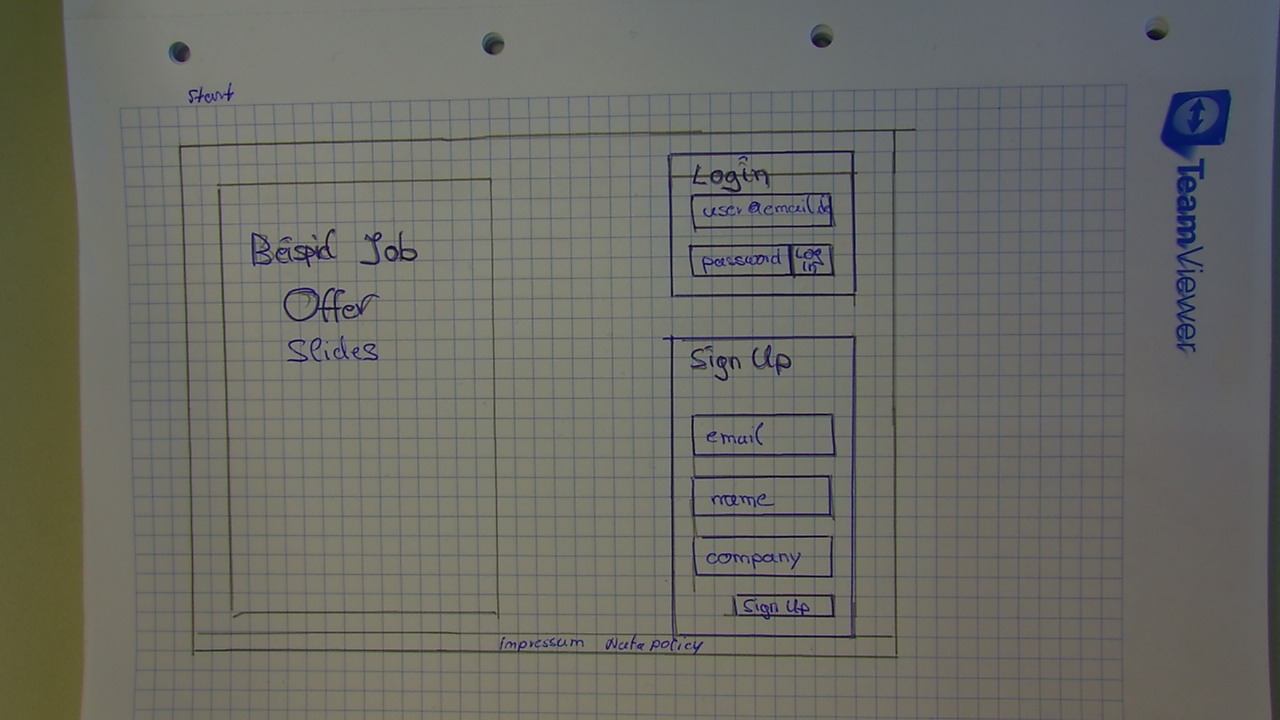 Start
Beispiel Job
Offer
Slides
Login
user@email.de
password
Log
in
Sign Up
email
name
company
Sign Up
impressum Datapolicy
TeamViewer